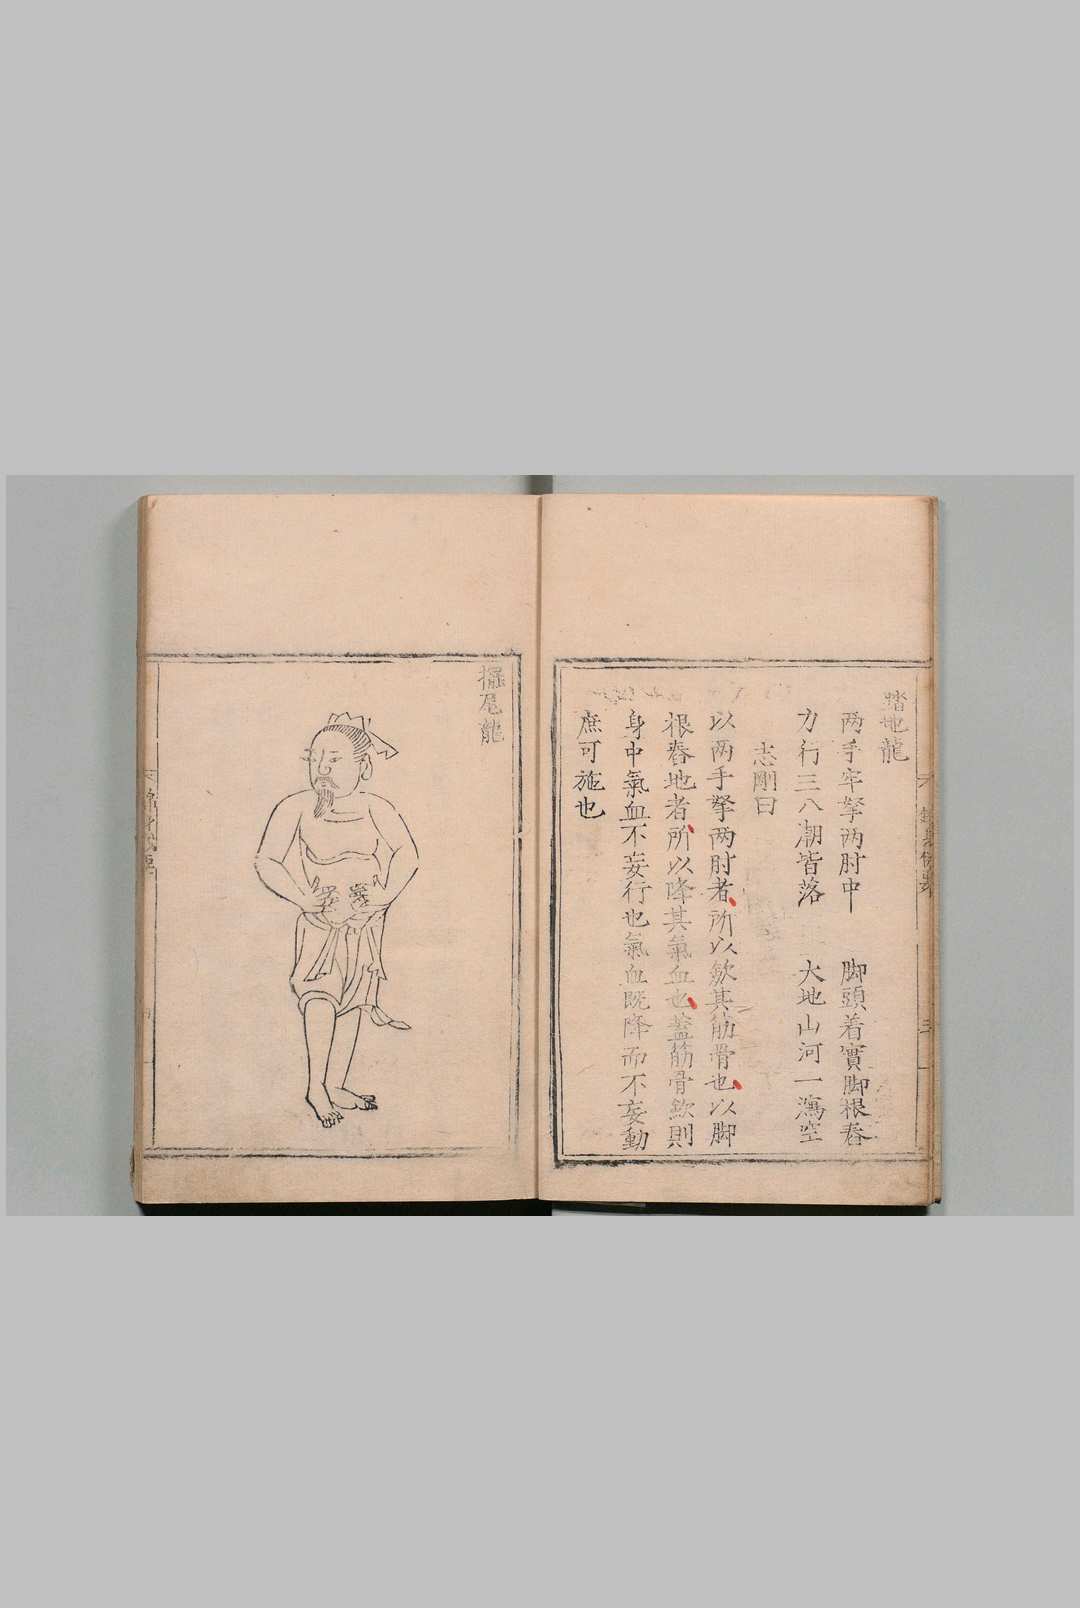 踏地龍
两手牢拏两肘中 脚頭着實脚根舂
力行三八潮皆落 大地山河一瀉空
志剛曰
以两手拏两肘者所以歛其筋骨也以脚
根舂地者所以降其氣血也蓋筋骨歛則
身中氣血不妄行也氣血既降而不妄動
庶可施也
擺尾龍
錦身機要